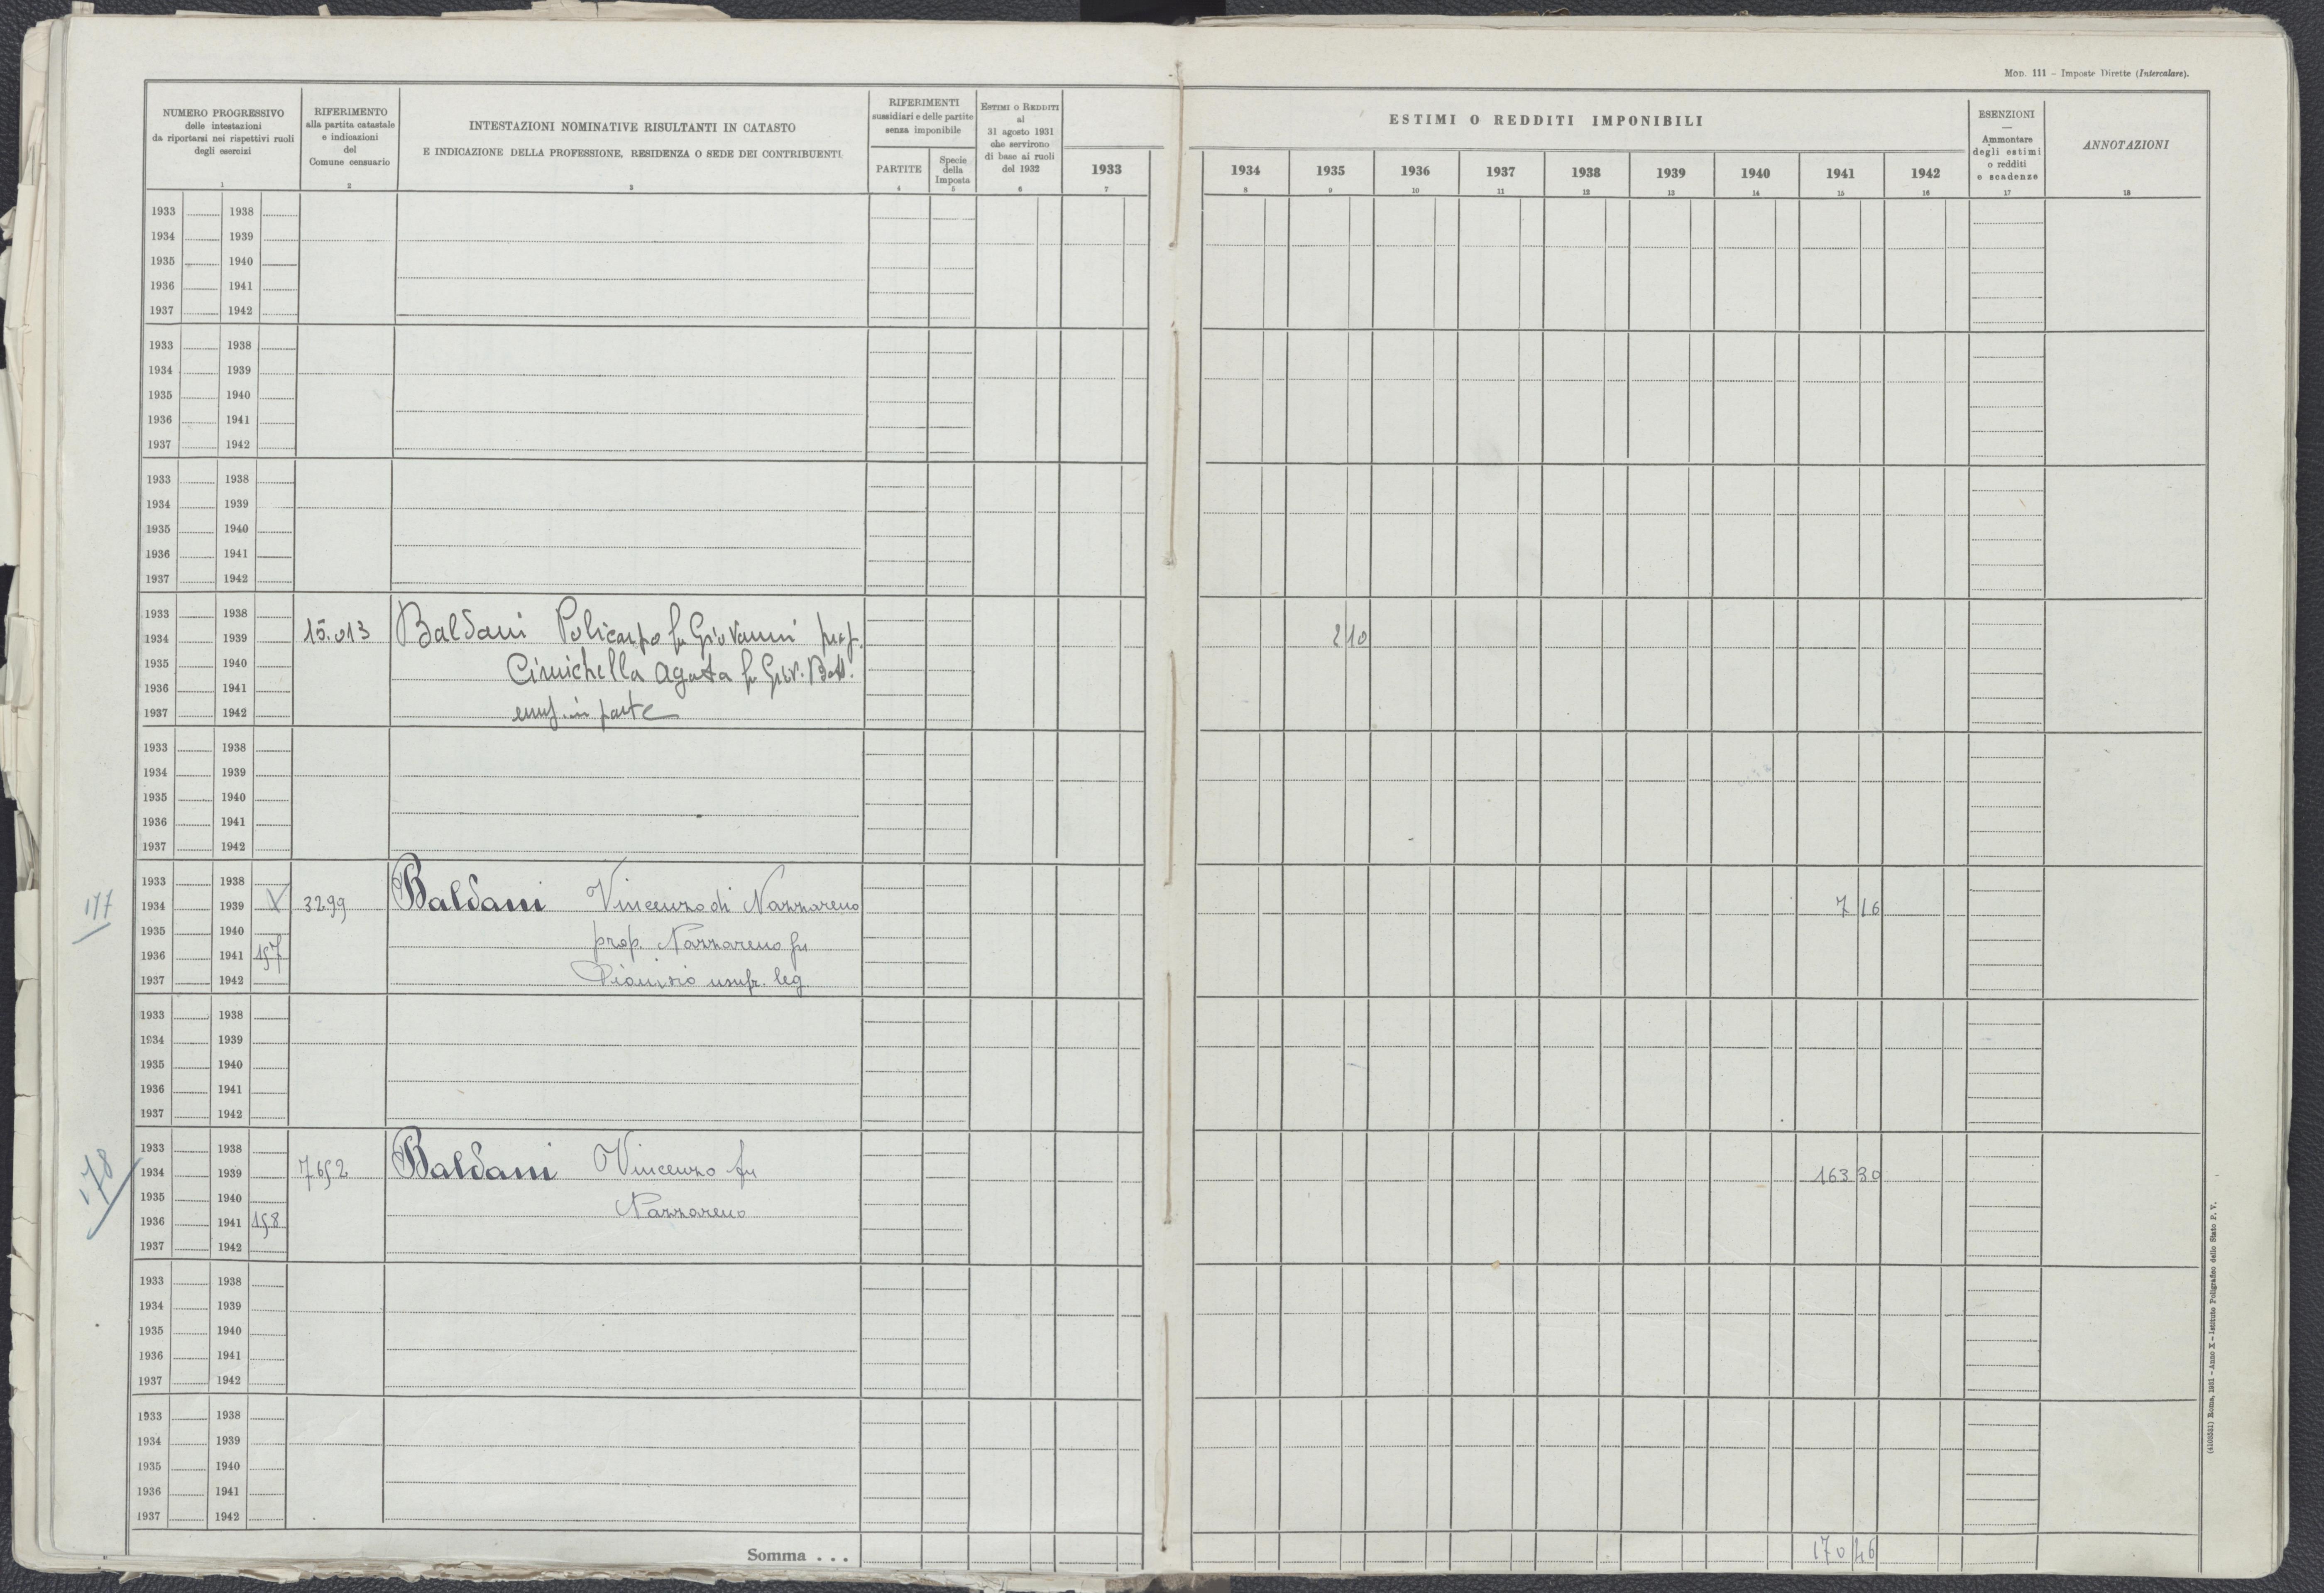 Mod. 111 - Imposte Dirette (Intercalare).
NUMERO PROGRESSIVO
delle intestazioni
da riportarsi nei rispettivi ruoli
degli esercizi
1
RIFERIMENTO
alla partita catastale
e indicazioni
del
Comune censuario
2
INTESTAZIONI NOMINATIVE RISULTANTI IN CATASTO
E INDICAZIONE DELLA PROFESSIONE, RESIDENZA O SEDE DEI CONTRIBUENTI
3
RIFERIMENTI
sussidiari e delle partite
senza imponibile
PARTITE
4
Specie
della
Imposta
5
Estimi o Redditi
al
31 agosto 1931
che servirono
di base ai ruoli
del 1932
6
1933
7
ESTIMI O REDDITI IMPONIBILI
1934 1935 1936 1937 1938 1939 1940 1941 1942
8 9 10 11 12 13 14 15 16
ESENZIONI
—
Ammontare
degli estimi
o redditi
e scadenze
17
ANNOTAZIONI
18
1933 1938
1934 1939
1935 1940
1936 1941
1937 1942
1933 1938
1934 1939
1935 1940
1936 1941
1937 1942
1933 1938
1934 1939
1935 1940
1936 1941
1937 1942
1933 1938
1934 1939 15.013 Baldani Policarpo fu Giovanni prop. 2 10
1935 1940 Cimichella Agata fu Giov. Batt.
1936 1941
1937 1942 in parte
1933 1938
1934 1939
1935 1940
1936 1941
1937 1942
1933 1938
177 1934 1939 3299 Baldani Vincenzo di Nazzareno 7 16
1935 1940 prop. Nazzareno fu
1936 1941 157
1937 1942 Dionisio usufr. leg.
1933 1938
1934 1939
1935 1940
1936 1941
1937 1942
1933 1938
178 1934 1939 7652 Baldani Vincenzo fu 163 30
1935 1940 Nazzareno
1936 1941 158
1937 1942
1933 1938
1934 1939
1935 1940
1936 1941
1937 1942
1933 1938
1934 1939
1935 1940
1936 1941
1937 1942
Somma . . . 170 46
(4108531) Roma, 1931 - Anno X - Istituto Poligrafico dello Stato P. V.